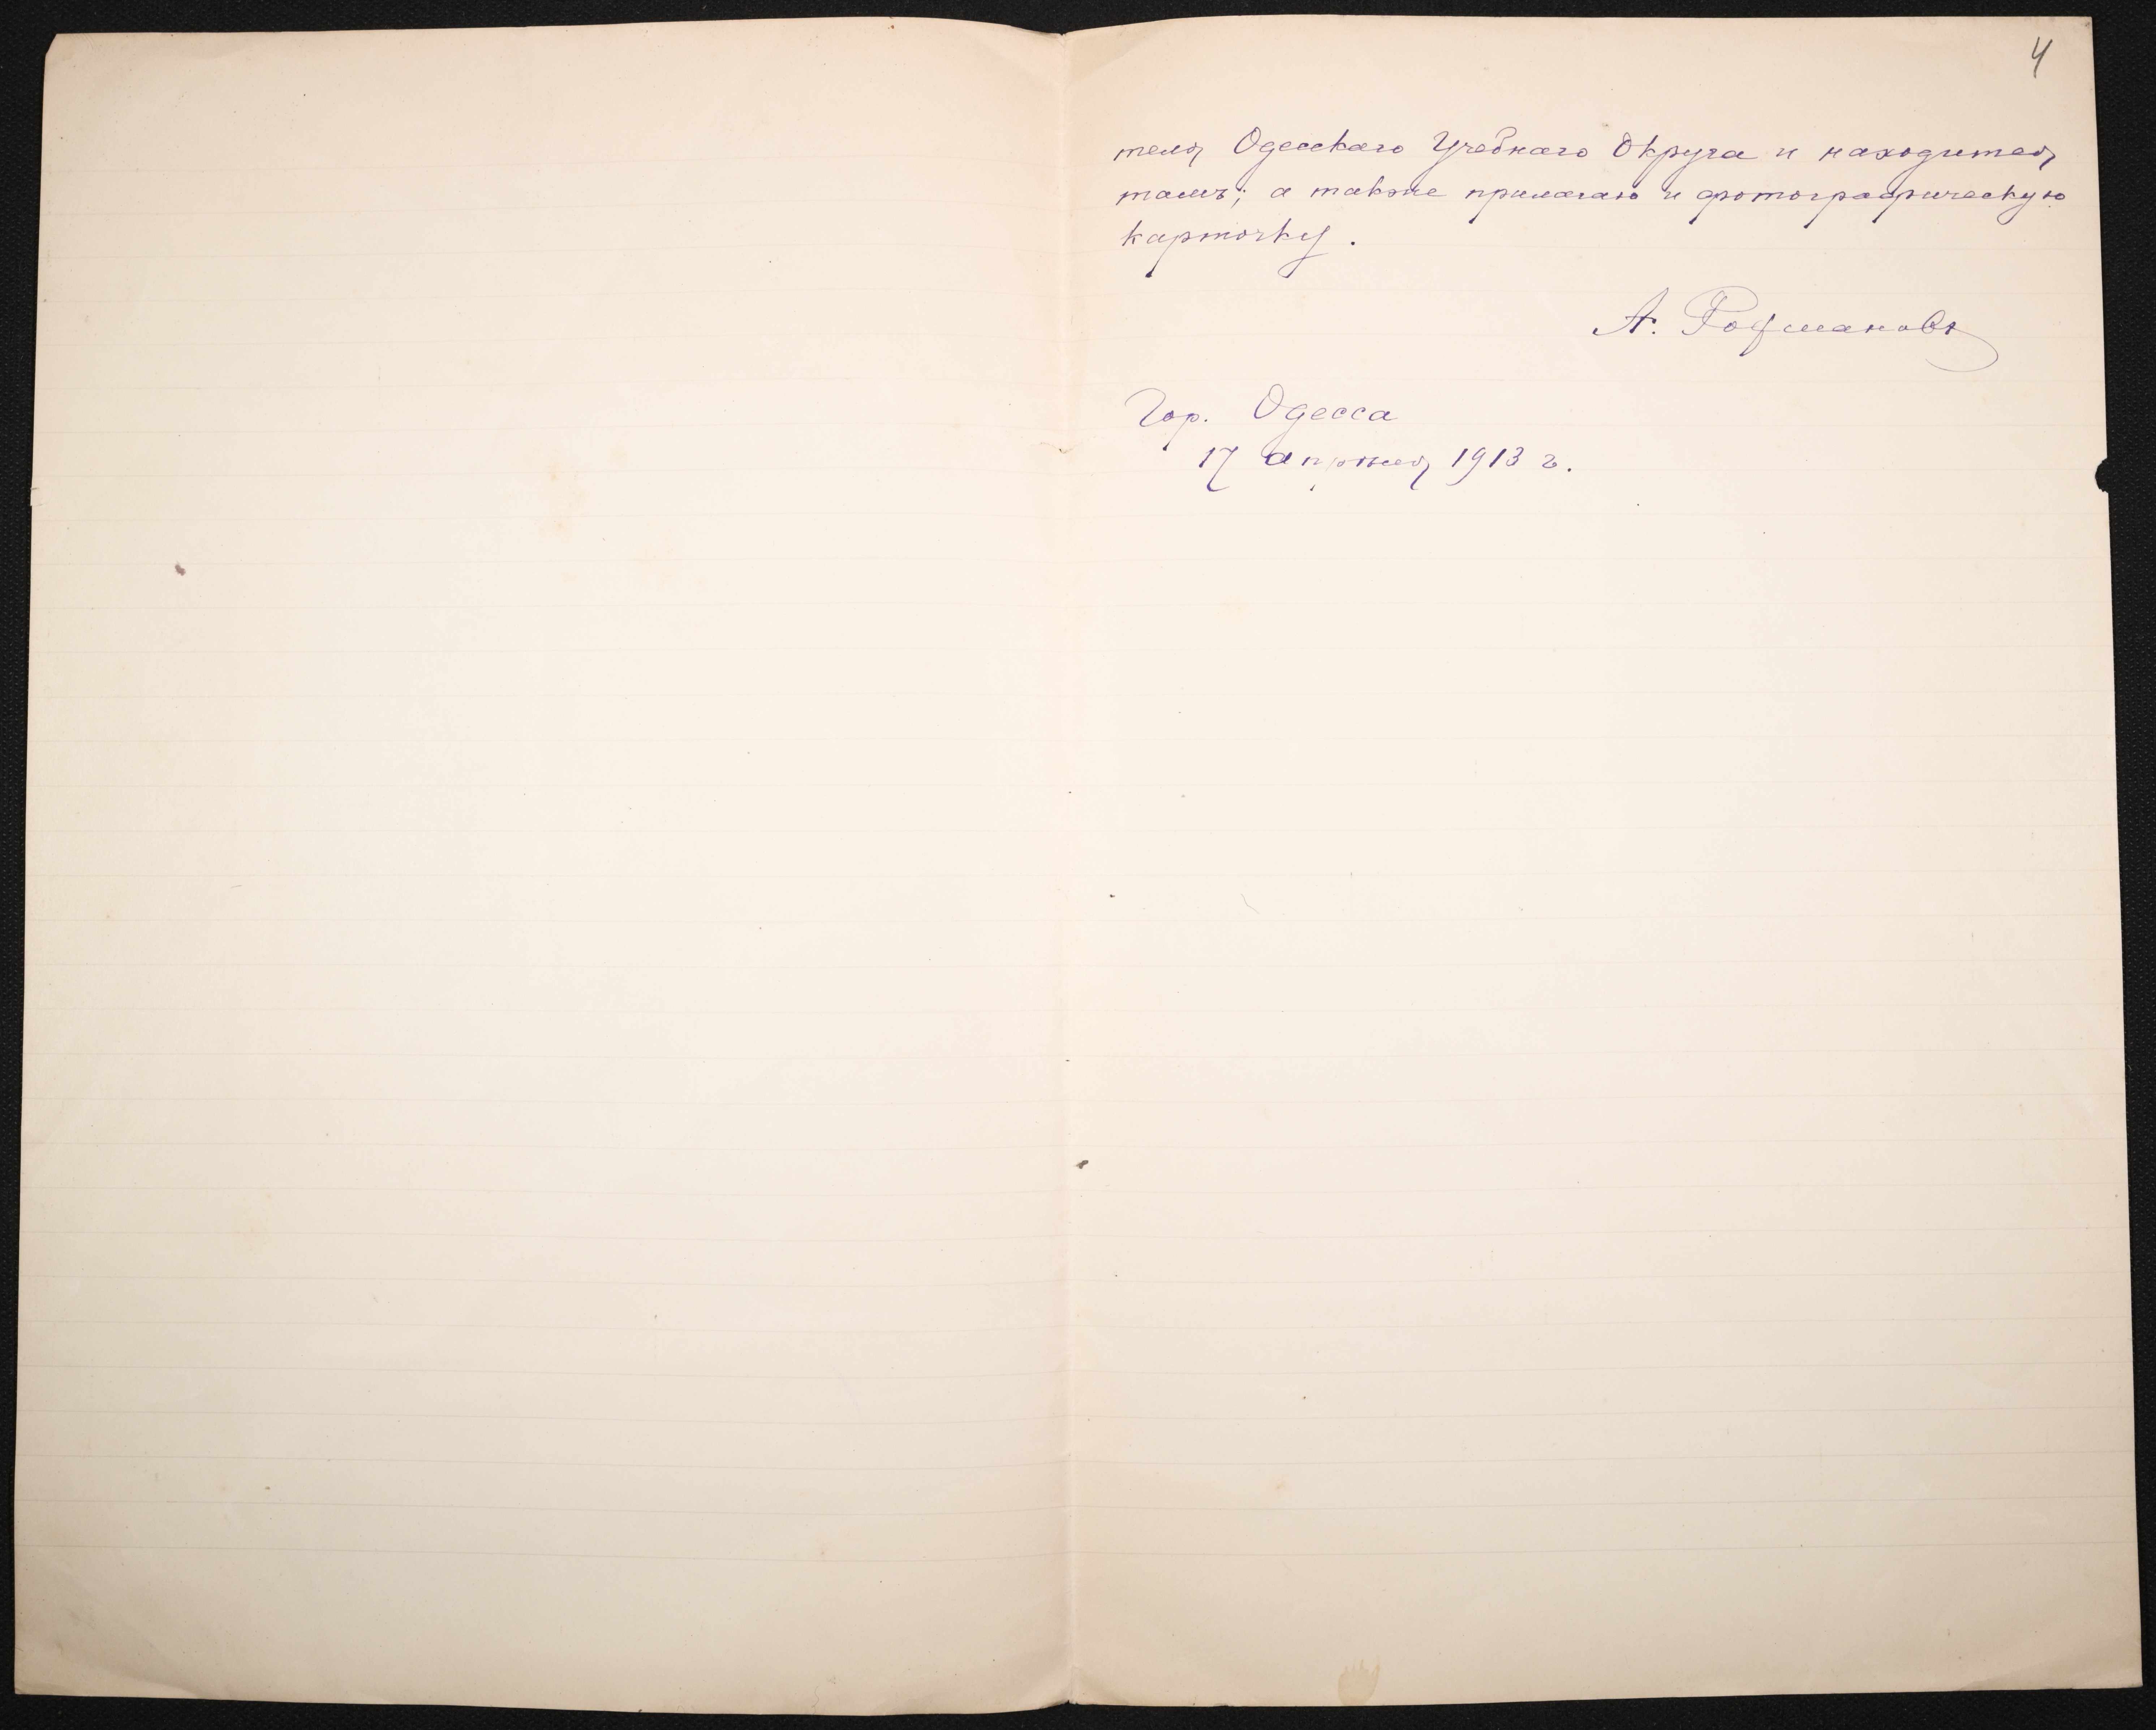 4
теля Одесскаго Учебнаго Округа и находится
тамъ; а также прилагаю и фотографическую
карточку.
А.
Гор. Одесса
17 апрѣля 1913 г.